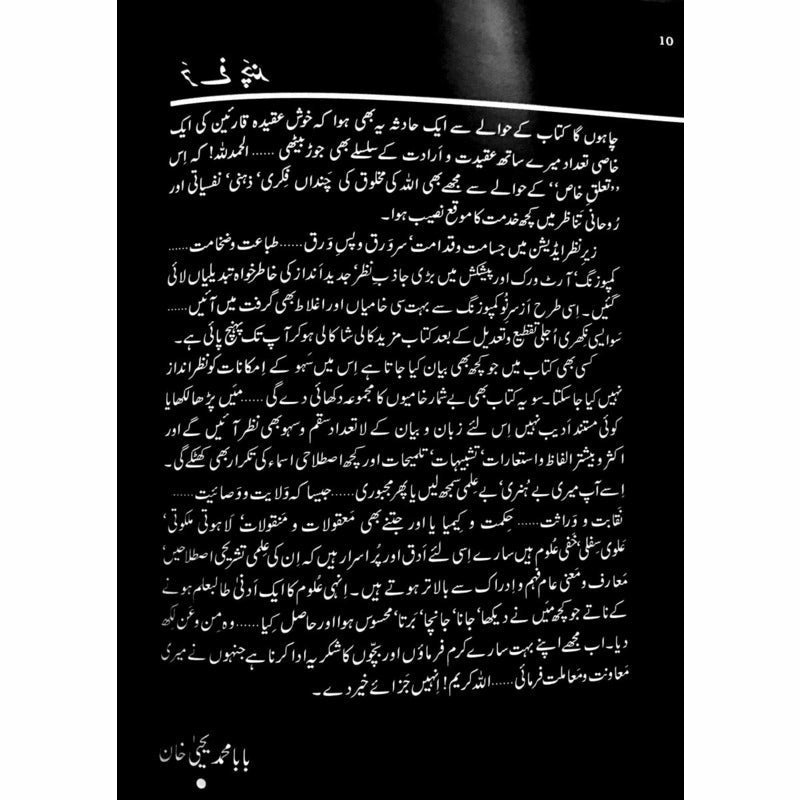 10
چاہوں گا کتاب کے حوالے سے ایک حادثہ یہ بھی ہوا کہ خوش عقیدہ قارئین کی ایک
خاصی تعداد میرے ساتھ عقیدت و اَرادت کے سلسلے بھی جوڑ بیٹھی ...... الحمدللہ! کہ اِس
''تعلقِ خاص'' کے حوالے سے مجھے بھی اللہ کی مخلوق کی چَنداں فِکری' ذہنی' نفسیاتی اور
رُوحانی تناظر میں کچھ خدمت کا موقع نصیب ہوا۔
زیرِ نظر ایڈیشن میں جسامت و قدامت' سرِوَرق و پسِ وَرق ...... طباعت و ضخامت ......
کمپوزنگ' آرٹ ورک اور پیشکش میں بڑی جاذبِ نظر' جدید اَنداز کی خاطر خواہ تبدیلیاں لائی
گئیں۔ اِسی طرح اَز سرِ نُو کمپوزنگ سے بہت سی خامیاں اور اغلاط بھی گرفت میں آئیں ......
سَو ایسی نِکھری اُجلی تقطیع و تعدیل کے بعد کتاب مزید کالی شا کالی ہو کر آپ تک پہنچ پائی ہے۔
کسی بھی کتاب میں جو کچھ بھی بیان کیا جاتا ہے اِس میں سَہو کے اِمکانات کو نظر انداز
نہیں کیا جا سکتا۔ سو یہ کتاب بھی بے شمار خامیوں کا مجموعہ دکھائی دے گی ...... میَں پڑھا لکھا یا
کوئی مستند اَدیب نہیں اِس لئے زبان و بیان کے لاتعداد سقم و سہو بھی نظر آئیں گے اور
اکثر و بیشتر الفاظ و استعارات' تشبیہات' تلمیحات اور کچھ اصطلاحی اسماء کی تکرار بھی کھٹکے گی۔
اِسے آپ میری بے ہُنری' بے عِلمی سمجھ لیں یا پھر مجبوری ...... جیسا کہ وَلایت و وَصائیت ......
نَقابت و وَراثت ...... حِکمت و کیمیا یا اور جتنے بھی مَعقولات و مَنقولات' لَاہوتی ملکوتی'
عَلوی سِفلی' خَفی عُلوم ہیں سارے اِسی لئے اَدق اور پُراَسرار ہیں کہ اِن کی عِلمی تشریحی اصطلاحیں'
مَعارف و مَعنی عام فہم و اِدراک سے بالاتر ہوتے ہیں۔ اِنہی عُلوم کا ایک اَدنیٰ طالبعلم ہونے
کے ناتے جو کچھ میَں نے دیکھا' جانا' جانچا' بَرتا' محسوس ہوا اور حاصل کِیا ...... وہ مِن و عَن لکھ
دیا۔ اب مجھے اپنے بہت سارے کرم فرماؤں اور بچّوں کا شکریہ اِدا کرنا ہے جنہوں نے میری
مَعاونت و مَعاملت فرمائی ...... اللہ کریم! اِنہیں جَزائے خیر دے۔
بابا محمد یحییٰ خان